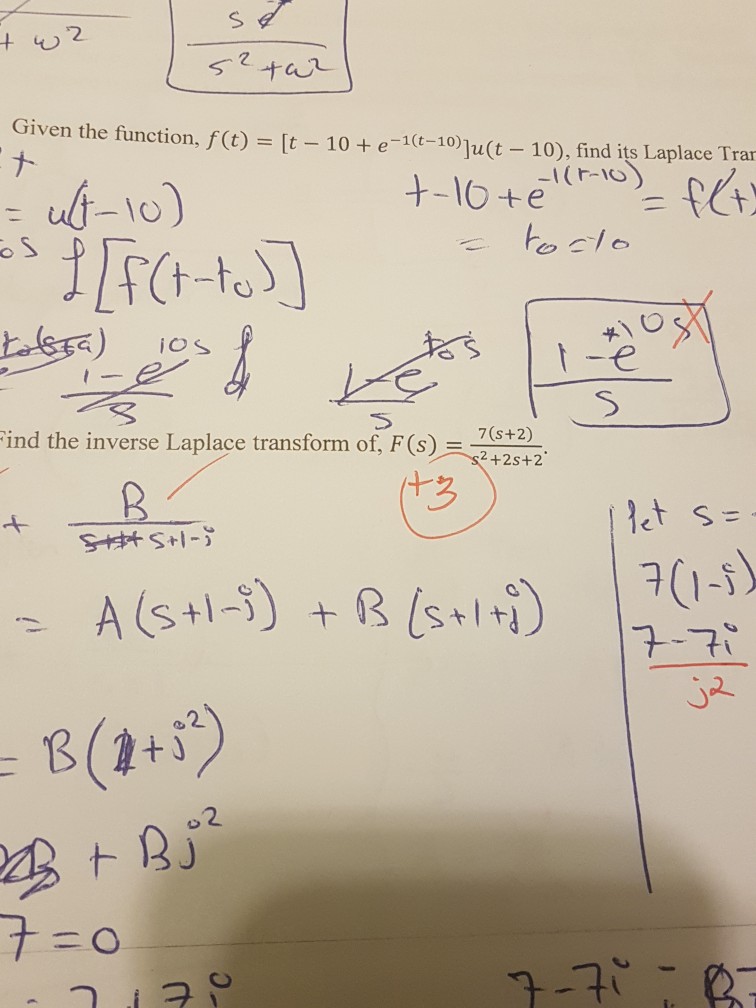 + ω²
s²+ω²
Given the function, f(t) = [t − 10 + e^−1(t−10)]u(t − 10), find its Laplace Tran
= u(t-10)
t-10+e^-1(t-10) = f(t)
= t₀=10
ℒ[f(t-t₀)]
1-e^10s
s
1-e^t₀s
s
1-e^10s
s
Find the inverse Laplace transform of, F(s) = 7(s+2)/s²+2s+2.
+3
+ B
s+1-j
= A(s+1-j) + B(s+1+j)
let s=
7(1-j)
7-7j
j2
= B( +j²)
+ Bj²
7=0
7-7j =